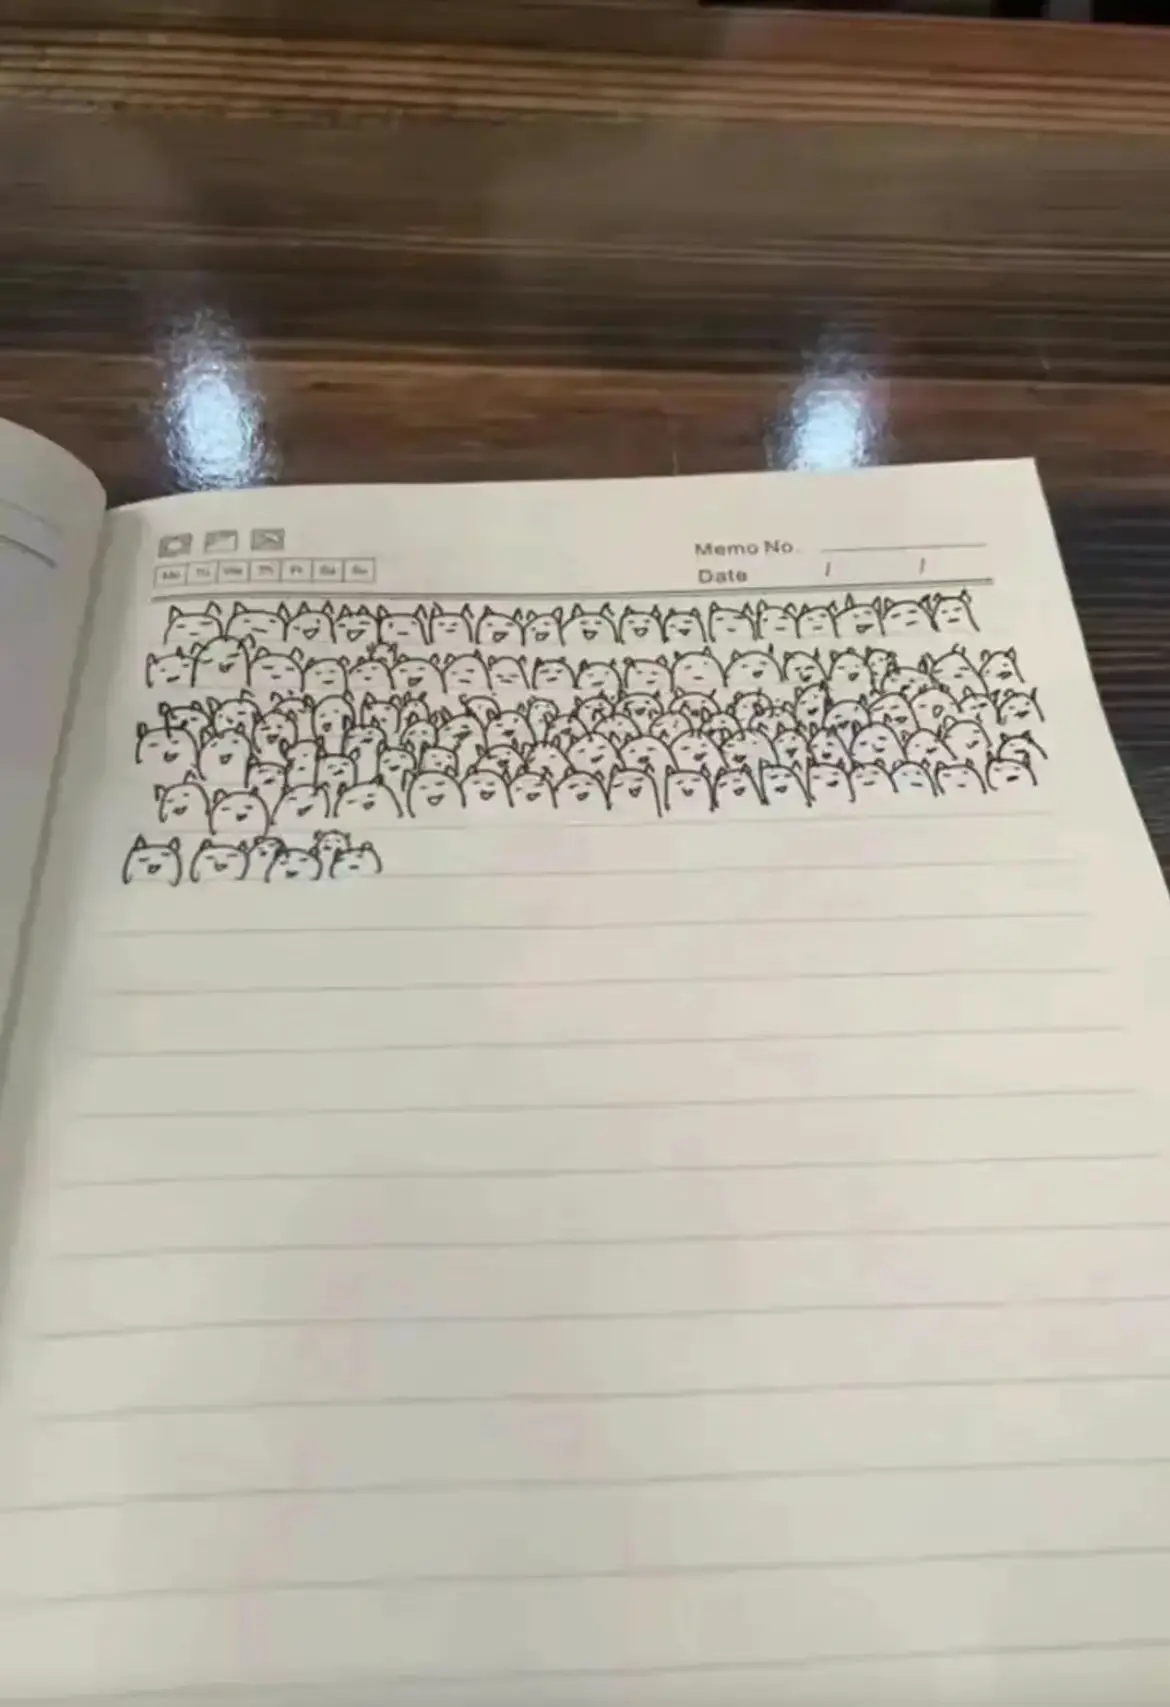 Memo No.
Mo Tu We Th Fr Sa Su
Date / /